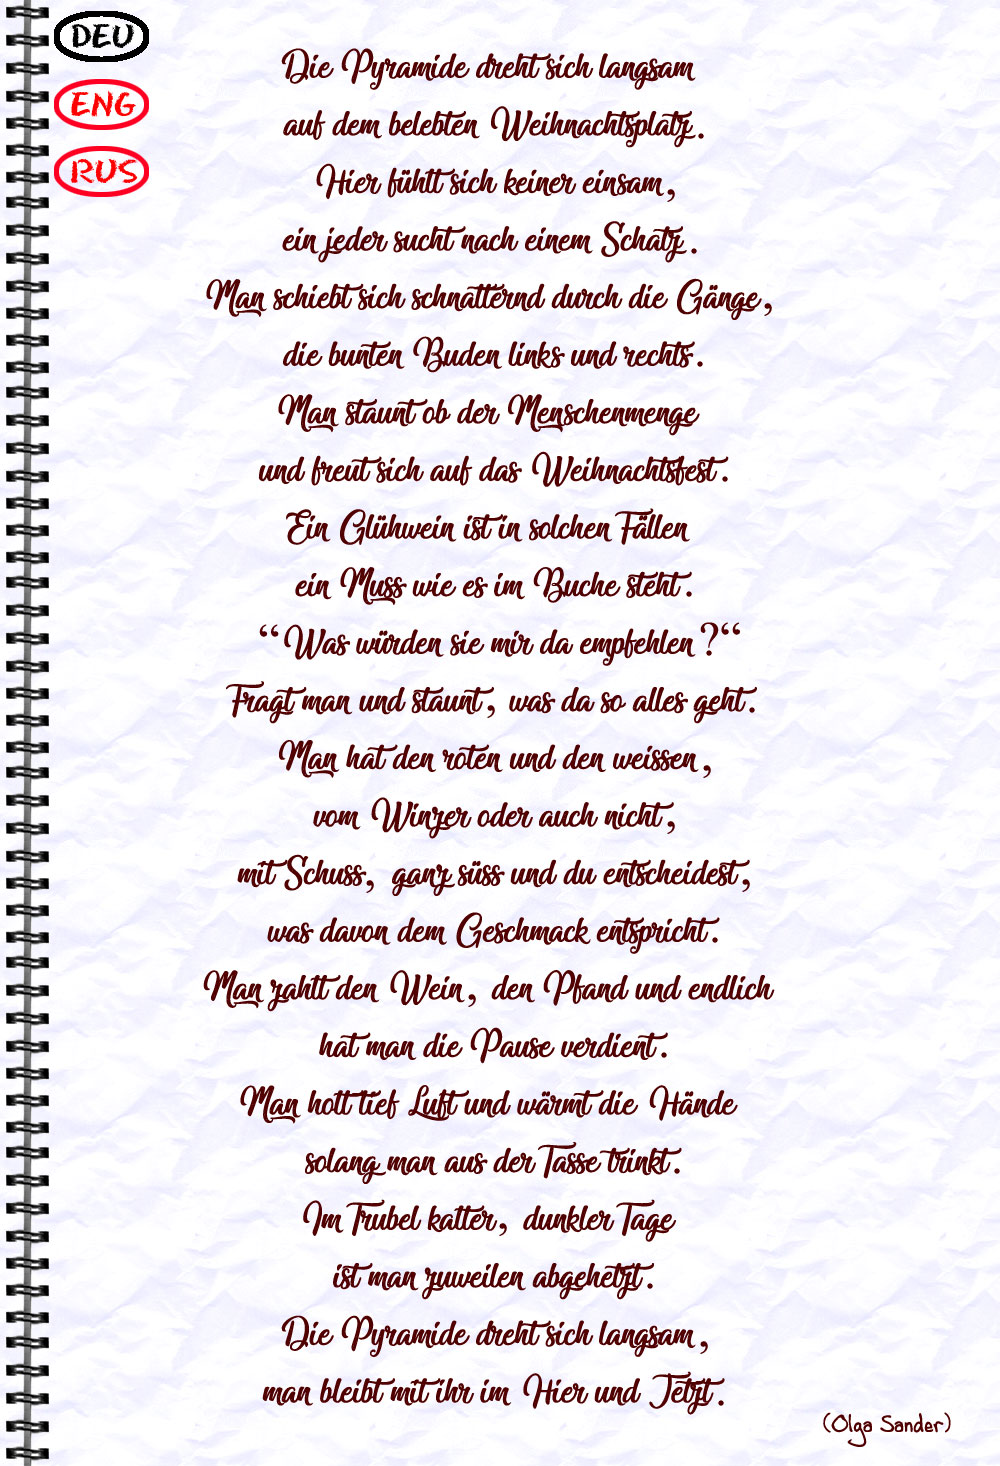 DEU
ENG
RUS
Die Pyramide dreht sich langsam
auf dem belebten Weihnachtsplatz.
Hier fühlt sich keiner einsam,
ein jeder sucht nach einem Schatz.
Man schiebt sich schnatternd durch die Gänge,
die bunten Buden links und rechts.
Man staunt ob der Menschenmenge
und freut sich auf das Weihnachtsfest.
Ein Glühwein ist in solchen Fällen
ein Muss wie es im Buche steht.
“Was würden sie mir da empfehlen?“
Fragt man und staunt, was da so alles geht.
Man hat den roten und den weissen,
vom Winzer oder auch nicht,
mit Schuss, ganz süss und du entscheidest,
was davon dem Geschmack entspricht.
Man zahlt den Wein, den Pfand und endlich
hat man die Pause verdient.
Man holt tief Luft und wärmt die Hände
solang man aus der Tasse trinkt.
Im Trubel kalter, dunkler Tage
ist man zuweilen abgehetzt.
Die Pyramide dreht sich langsam,
man bleibt mit ihr im Hier und Jetzt.
(Olga Sander)